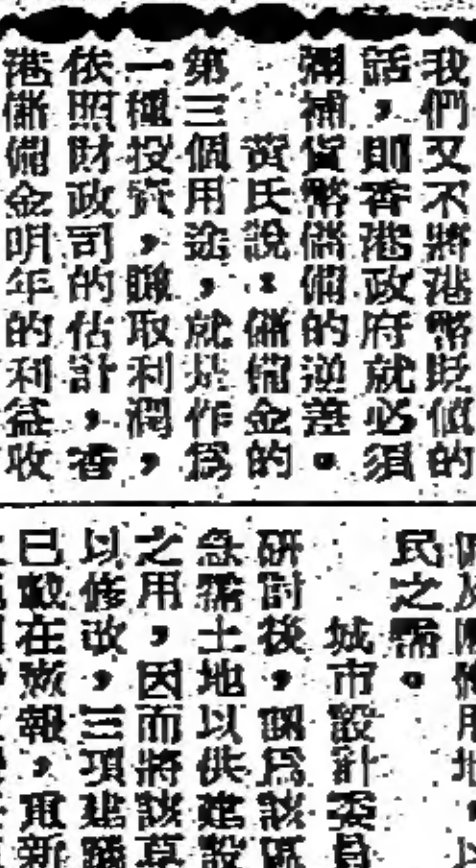 我們又不將港幣貶値的
話，則香港政府就必須
彌補貨幣儲備的逆差。
黃氏說：儲備金的
第三個用途，就是作爲
一種投資，賺取利潤，
依照財政司的估計，香
港儲備金明年的利益收
民之需。
城市設計委員
研討後，認爲該區
急需土地以供建設
之用，因而將該草
以修改，三項建議
已
在
報，重新